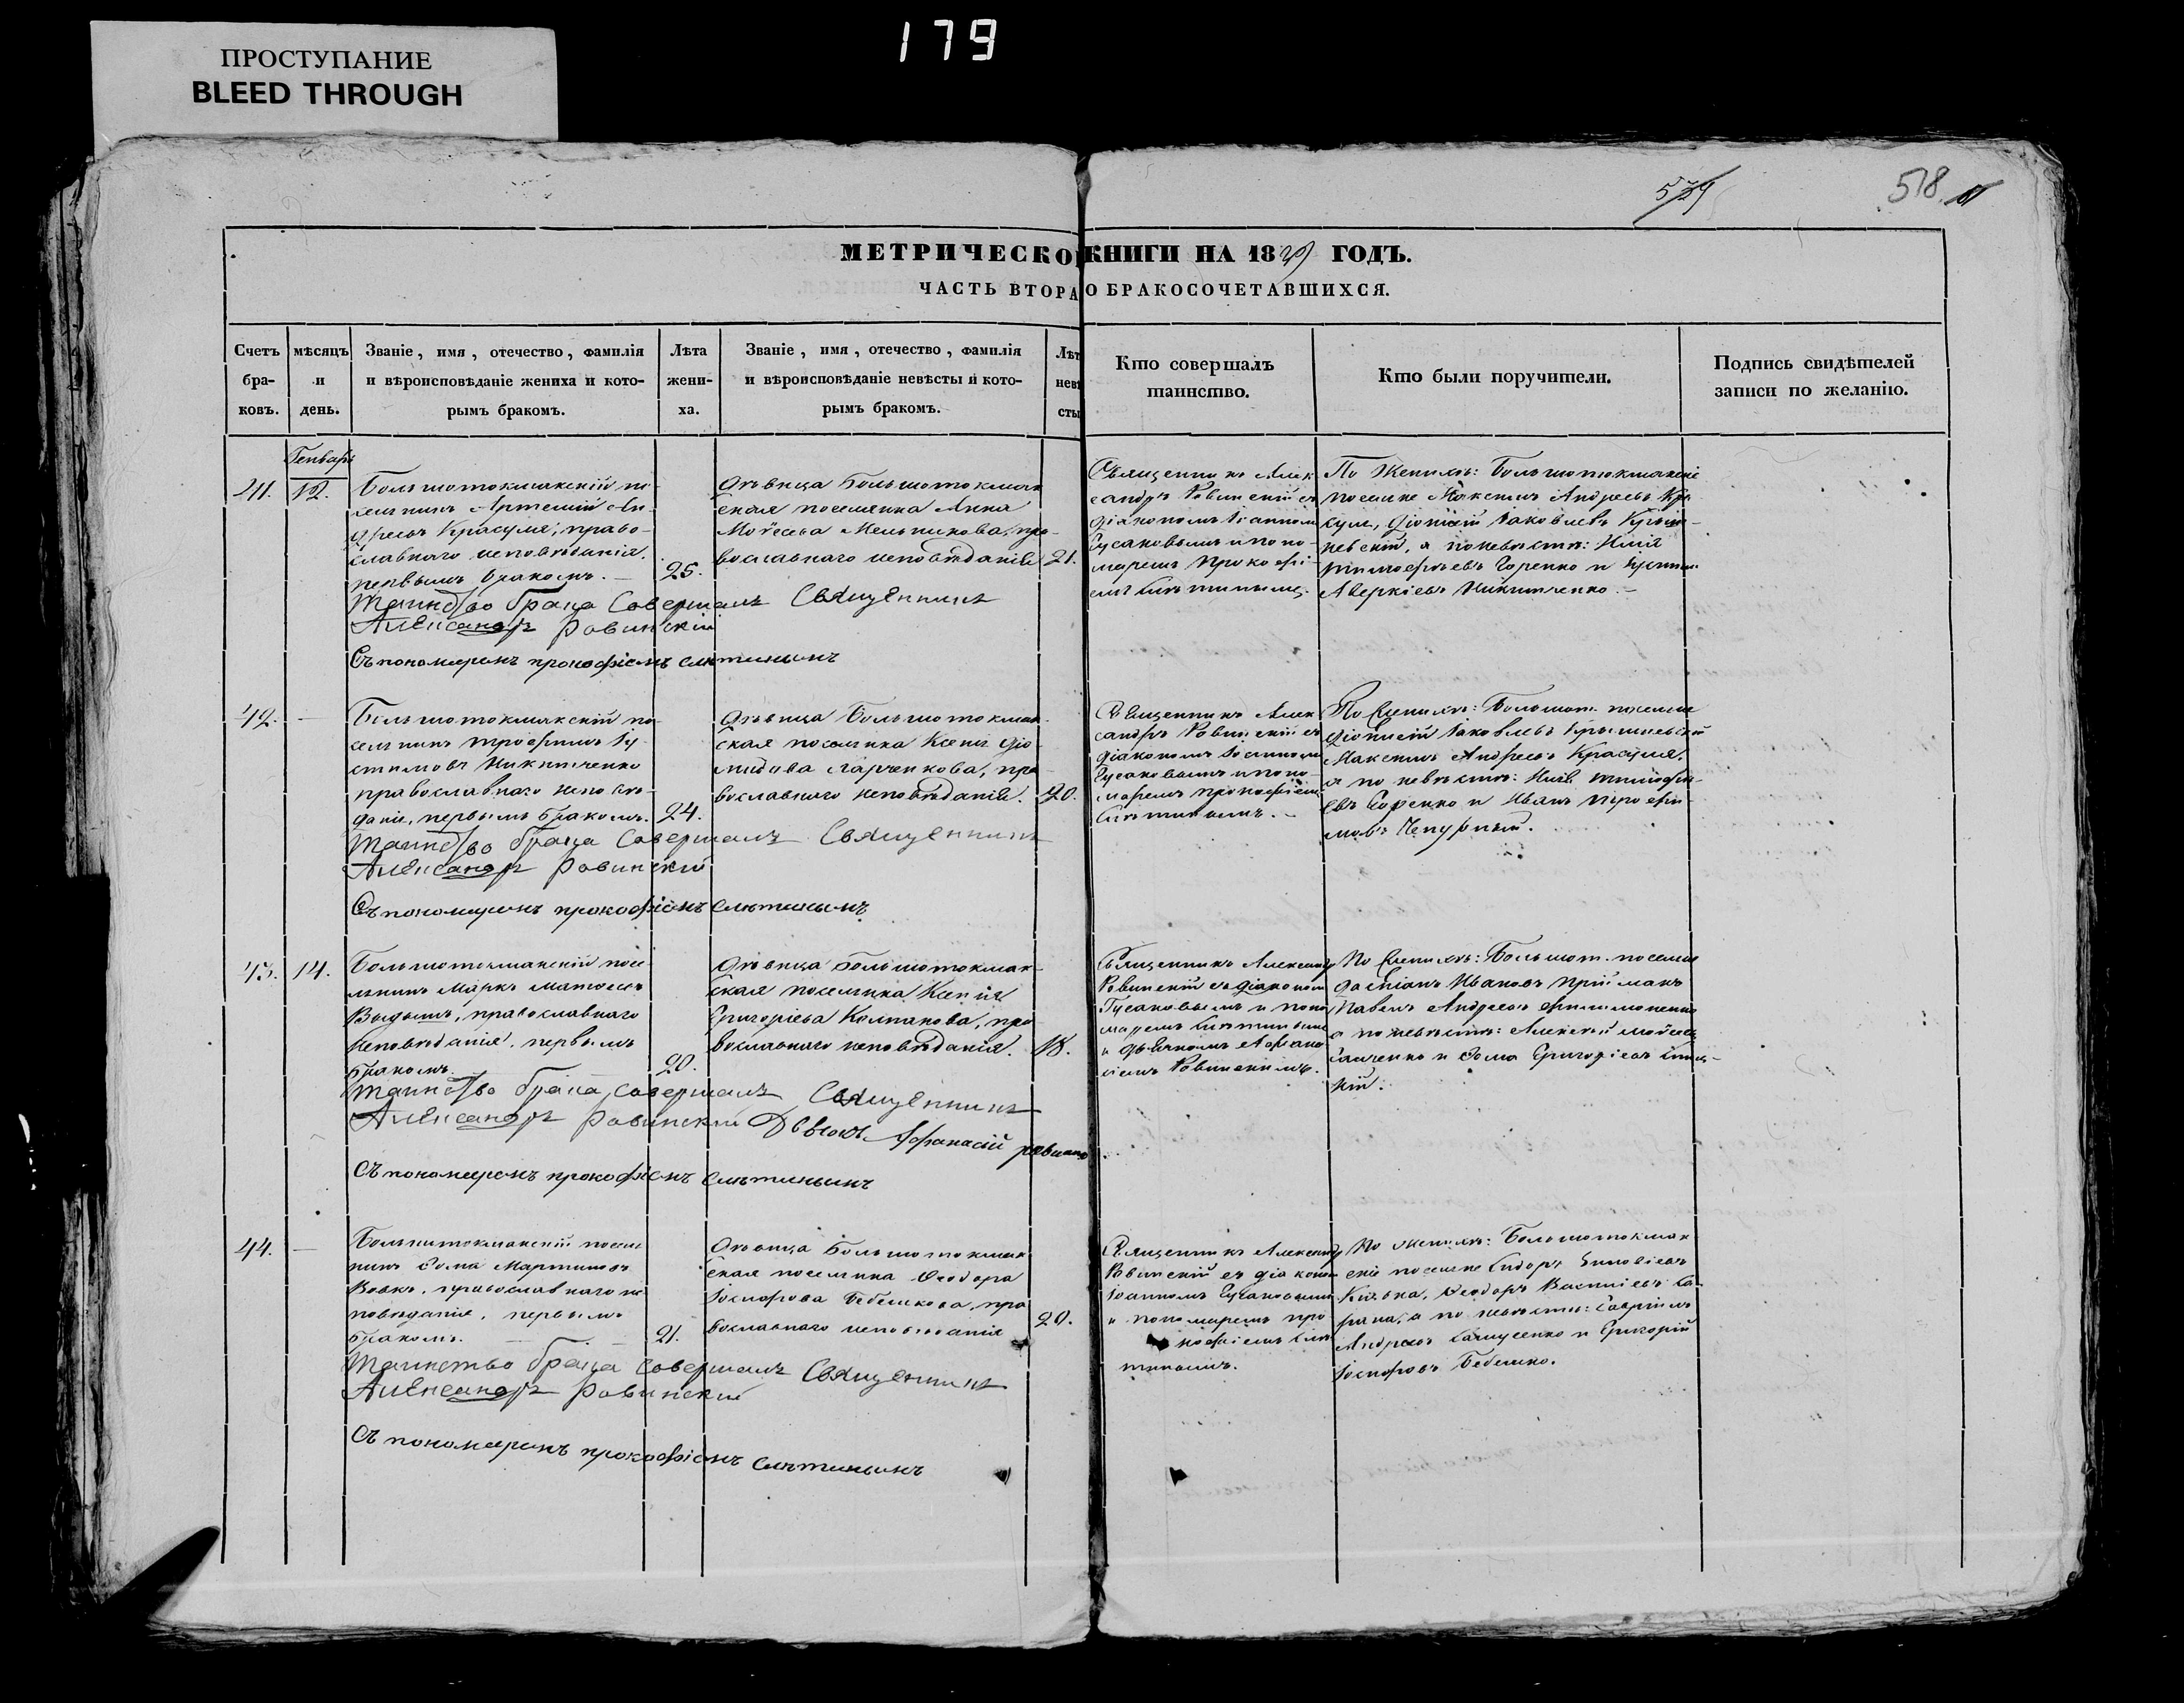 179
ПРОСТУПАНИЕ
BLEED THROUGH
518
МЕТРИЧЕСКО КНИГИ НА 18 ГОДЪ.
ЧАСТЬ ВТОРА О БРАКОСОЧЕТАВШИХСЯ.
Счетъ бра- ковъ.
мѣсяцъ и день.
Званіе, имя, отечество, фамилія и вѣроисповѣданіе жениха и кото- рымъ бракомъ.
Лѣта жени- ха.
Званіе, имя, отечество, фамилія и вѣроисповѣданіе невѣсты и кото- рымъ бракомъ.
Лѣт невѣ сты
Кто совершалъ таинство.
Кто были поручители.
Подпись свидѣтелей записи по желанію.
Генварь
41. 12.
Большотокмакскій по-
селянинъ Артемій Ан-
дреевъ Красуля, право-
славнаго исповѣданія,
первымъ бракомъ.
25.
Дѣвица Большотокмак
ская поселянка Анна
Моѵсеева Мельникова, пра-
вославнаго исповѣданія
21.
Священникъ Алек
сандръ Равинскій съ
діакономъ Іоанномъ
Гусаковымъ и поно-
маремъ Прокофі-
емъ
По женихѣ: Большотокмакскіе
поселяне Максимъ Андреевъ Кра
суля, Діонисій Іаковлевъ
а по невѣстѣ: Илія
Тимофѣевъ Горенко и
Аверкіевъ Никитченко.
Таинство брака Совершалъ Священникъ
Александръ Равинскій
Съ пономаремъ прокофіемъ
42. —
Большотокмакскій по-
селянинъ Трофимъ Іу-
стиновъ Никитченко
православнаго исповѣ-
данія, первымъ бракомъ.
24.
Дѣвица Большотокмак-
ская поселянка Ксенія Діо-
мидова Ларченкова, пра-
вославнаго исповѣданія.
20.
Священникъ Алек
сандръ Равинскій съ
діакономъ Іоанномъ
Гусаковымъ и поно-
маремъ Прокофіемъ
По женихѣ: Большот. поселяне
Діонисій Іаковлевъ
Максимъ Андреевъ Красуля,
а по невѣстѣ: Илія Тимофѣ-
евъ Горенко и Иванъ Трофи-
мовъ Чепурный.
Таинство брака Совершалъ Священникъ
Александръ Равинскій
Съ пономаремъ прокофіемъ
43. 14.
Большотокмакскій посе-
лянинъ Маркъ Матѳеевъ
православнаго
исповѣданія, первымъ
бракомъ.
20.
Дѣвица Большотокмак-
ская поселянка Ксенія
Григоріева Колпакова, пра
вославнаго исповѣданія.
18.
Священникъ Александръ
Равинскій съ діакономъ
Гусаковымъ и поно
маремъ
и дьячкомъ Афана
сіемъ Равинскимъ.
По женихѣ: Большот. поселяне
Ивановъ Прійманъ
Павелъ Андреевъ Филимоненко
а по невѣстѣ: Алексѣй Моѵсеевъ
и Ѳома Григоріевъ
Таинство брака совершалъ Священникъ
Александръ Равинскій Дьячокъ Афанасій равинс
Съ пономаремъ прокофіемъ
44. —
Большотокмакскій посел
нинъ Ѳома Мартиновъ
Вовкъ, православнаго ис
повѣданія, первымъ
бракомъ.
21.
Дѣвица Большотокмак
ская поселянка Ѳеодора
Іосифова Бебешкова, пра
вославнаго исповѣданія
20.
Священникъ Александръ
Равинскій съ діакономъ
Іоанномъ Гусаковымъ
и пономаремъ Про
кофіемъ
По женихѣ: Большотокмак
скіе поселяне Сидоръ Зиновіевъ
Ѳеодоръ Василіевъ
а по невѣстѣ: Гавріилъ
Андреевъ и Григорій
Іосифовъ Бебешко.
Таинство брака совершалъ Священникъ
Александръ Равинскій
Съ пономаремъ прокофіемъ